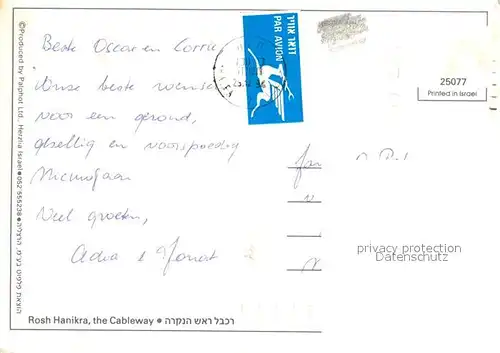 Beste Oscar en Corrie,
Onze beste wensen
voor een gezond,
gezellig en voorspoedig
Nieuwjaar
Veel groeten,
Adva &
דואר אויר
PAR AVION
25077
Printed in Israel
©Produced by Palphot Ltd. Herzlia Israel • 052 555238 • הוצאת פלפוט בע״מ. הרצליה
privacy protection
Datenschutz
Rosh Hanikra, the Cableway • רכבל ראש הנקרה